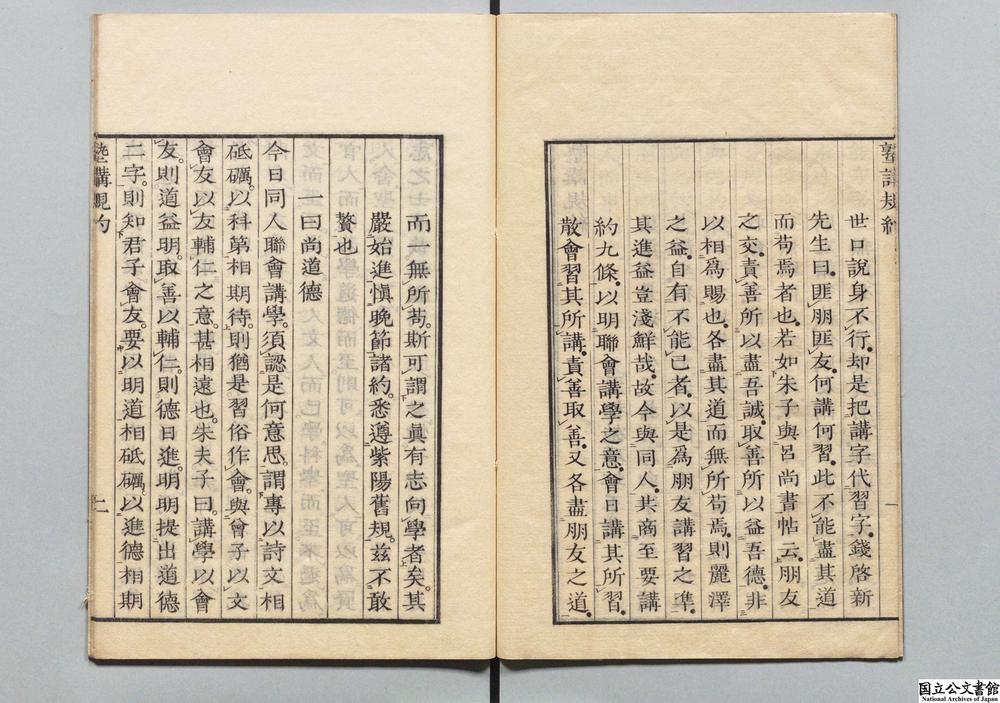 塾講規約
世口說身不行却是把講字代習字錢啓新
先生曰匪朋匪友何講何習此不能盡其道
而苟焉者也若如朱子與呂尚書帖云朋友
之交責善所以盡吾誠取善所以益吾德非
以相爲賜也各盡其道而無所苟焉則麗澤
之益自有不能已者以是爲朋友講習之準
其進益豈淺鮮哉故今與同人共商至要講
約九條以明聯會講學之意會日講其所習
散會習其所講責善取善又各盡朋友之道
一
而一無所苟斯可謂之眞有志向學者矣其
嚴始進愼晚節諸約悉遵紫陽舊規兹不敢
贅也
一曰尚道德
今日同人聯會講學須認是何意思謂專以詩文相
砥礪以科第相期待則猶是習俗作會與曾子以文
會友以友輔仁之意甚相遠也朱夫子曰講學以會
友則道益明取善以輔仁則德日進明明提出道德
二字則知君子會友要以明道相砥礪以進德相期
塾講規約
二
国立公文書館
National Archives of Japan